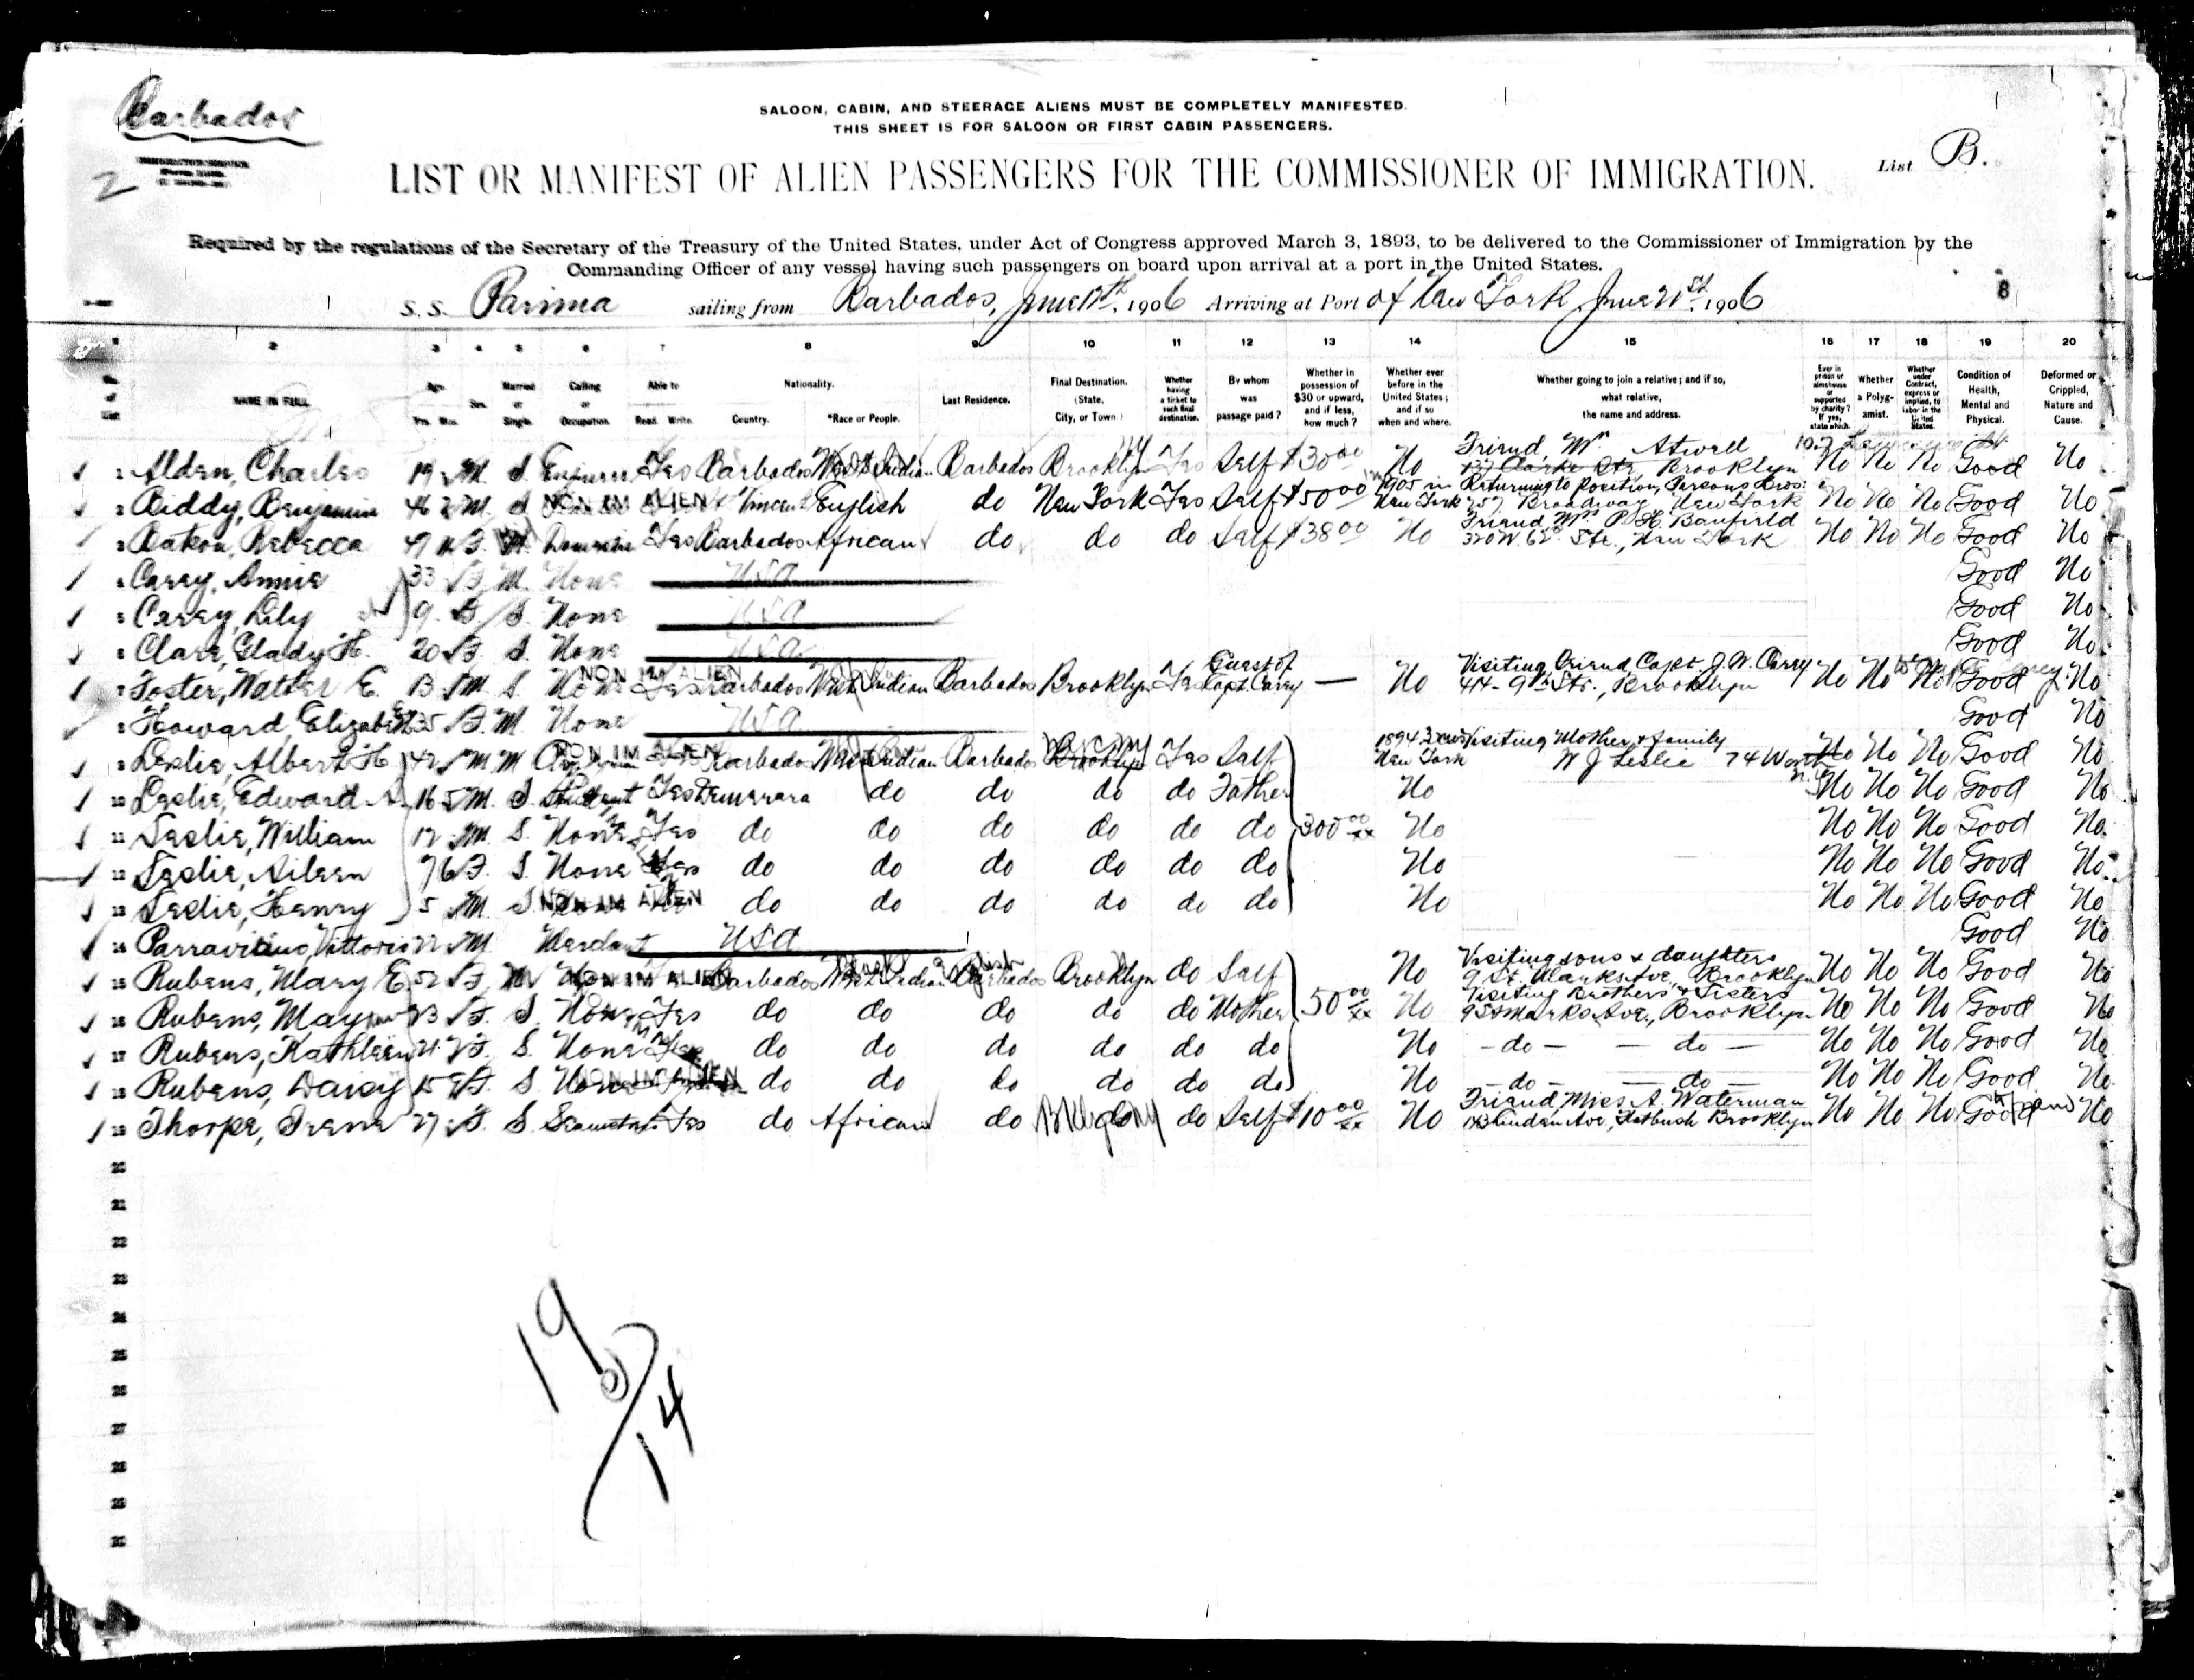 Barbados
SALOON, CABIN, AND STEERAGE ALIENS MUST BE COMPLETELY MANIFESTED.
THIS SHEET IS FOR SALOON OR FIRST CABIN PASSENGERS.
2
LIST OR MANIFEST OF ALIEN PASSENGERS FOR THE COMMISSIONER OF IMMIGRATION.
List B.
Required by the regulations of the Secretary of the Treasury of the United States, under Act of Congress approved March 3, 1893, to be delivered to the Commissioner of Immigration by the
Commanding Officer of any vessel having such passengers on board upon arrival at a port in the United States.
S.S. Parima sailing from Barbados, June 12th, 1906 Arriving at Port of New York June 21st, 1906
8
1 2 3 4 5 6 7 8 9 10 11 12 13 14 15 16 17 18 19 20
No. of List NAME IN FULL Age. Yrs. Mos. Sex. Married or Single. Calling or Occupation. Able to Read. Write. Nationality. Country. *Race or People. Last Residence. Final Destination. (State, City, or Town.) Whether having a ticket to such final destination. By whom was passage paid? Whether in possession of $30 or upward, and if less, how much? Whether ever before in the United States; and if so when and where. Whether going to join a relative; and if so, what relative, the name and address. Ever in prison or almshouse or supported by charity? If yes, state which. Whether a Polygamist. Whether under Contract, express or implied, to labor in the United States. Condition of Health, Mental and Physical. Deformed or Crippled, Nature and Cause.
1 Alden, Charles 19 M. S. Yes Barbados West Indian Barbados Brooklyn NY Yes Self $30 00 No Friend, Mr Atwell Clarke Str, Brooklyn 107 No No No Good No
2 Biddy, Benjamin 46 M. S NON IM ALIEN St Vincent English do New York Yes Self $50 00 1905 in New York Returning to Position, Parsons Bros. 257 Broadway New York No No No Good No
3 Rebecca F. Domestic Yes Barbados African do do do Self $38 00 No Friend, Mrs P. H. Banfield 320 W. 62d Str., New York No No No Good No
4 Carey, Annie 33 F. M. None USA Good No
5 Carey, Lily 9 F. S. None USA Good No
6 Gladys H. 20 F. S. None USA Good No
7 Foster, Walter E. 13 M. S. None NON IM ALIEN Yes Barbados West Indian Barbados Brooklyn Yes Guest of Capt. Carey — No Visiting Friend Capt. J. W. Carey 414 - 9th Str., Brooklyn No No No Good No
8 Howard, Elizabeth 35 F. M. None USA Good No
9 Leslie, Albert H 42 M M NON IM ALIEN Barbados West Indian Barbados Brooklyn Yes Self 1894 New York Visiting Mother & family W J Leslie 74 No No No Good No
10 Leslie, Edward A. 16 5 M. S. Student Yes Demerara do do do do Father No No No No Good No
11 Leslie, William 12 M. S. None Yes do do do do do do 300 00 No No No No Good No.
12 Leslie, Aileen 7 6 F. S. None do do do do do do No No No No Good No
13 Leslie, Henry 5 M. S. NON IM ALIEN do do do do do do No No No No Good No
14 Parravicino, Vittorio M. USA Good No
15 Rubens, Mary E. 52 F. NON IM ALIEN Barbados West Indian Barbados Brooklyn do Self No Visiting sons & daughters 9 St. Marks Ave, Brooklyn No No No Good No
16 Rubens, May 23 F. S. None Yes do do do do do Mother 50 00 No Visiting Brothers & Sisters 9 St Marks Ave., Brooklyn No No No Good No
17 Rubens, Kathleen 21 F. S. None Yes do do do do do do No - do - - do - No No No Good No
18 Rubens, Daisy 15 F. S None NON IM ALIEN do do do do do do No - do - - do - No No No Good No
19 Thorpe, Irene 27 F. S. Seamstress Yes do African do do Self $10 00 No Friend, Miss A. Waterman Linden Ave, Flatbush Brooklyn No No No Good No
20
21
22
23
24
25
26
27
28
29
30
19
14